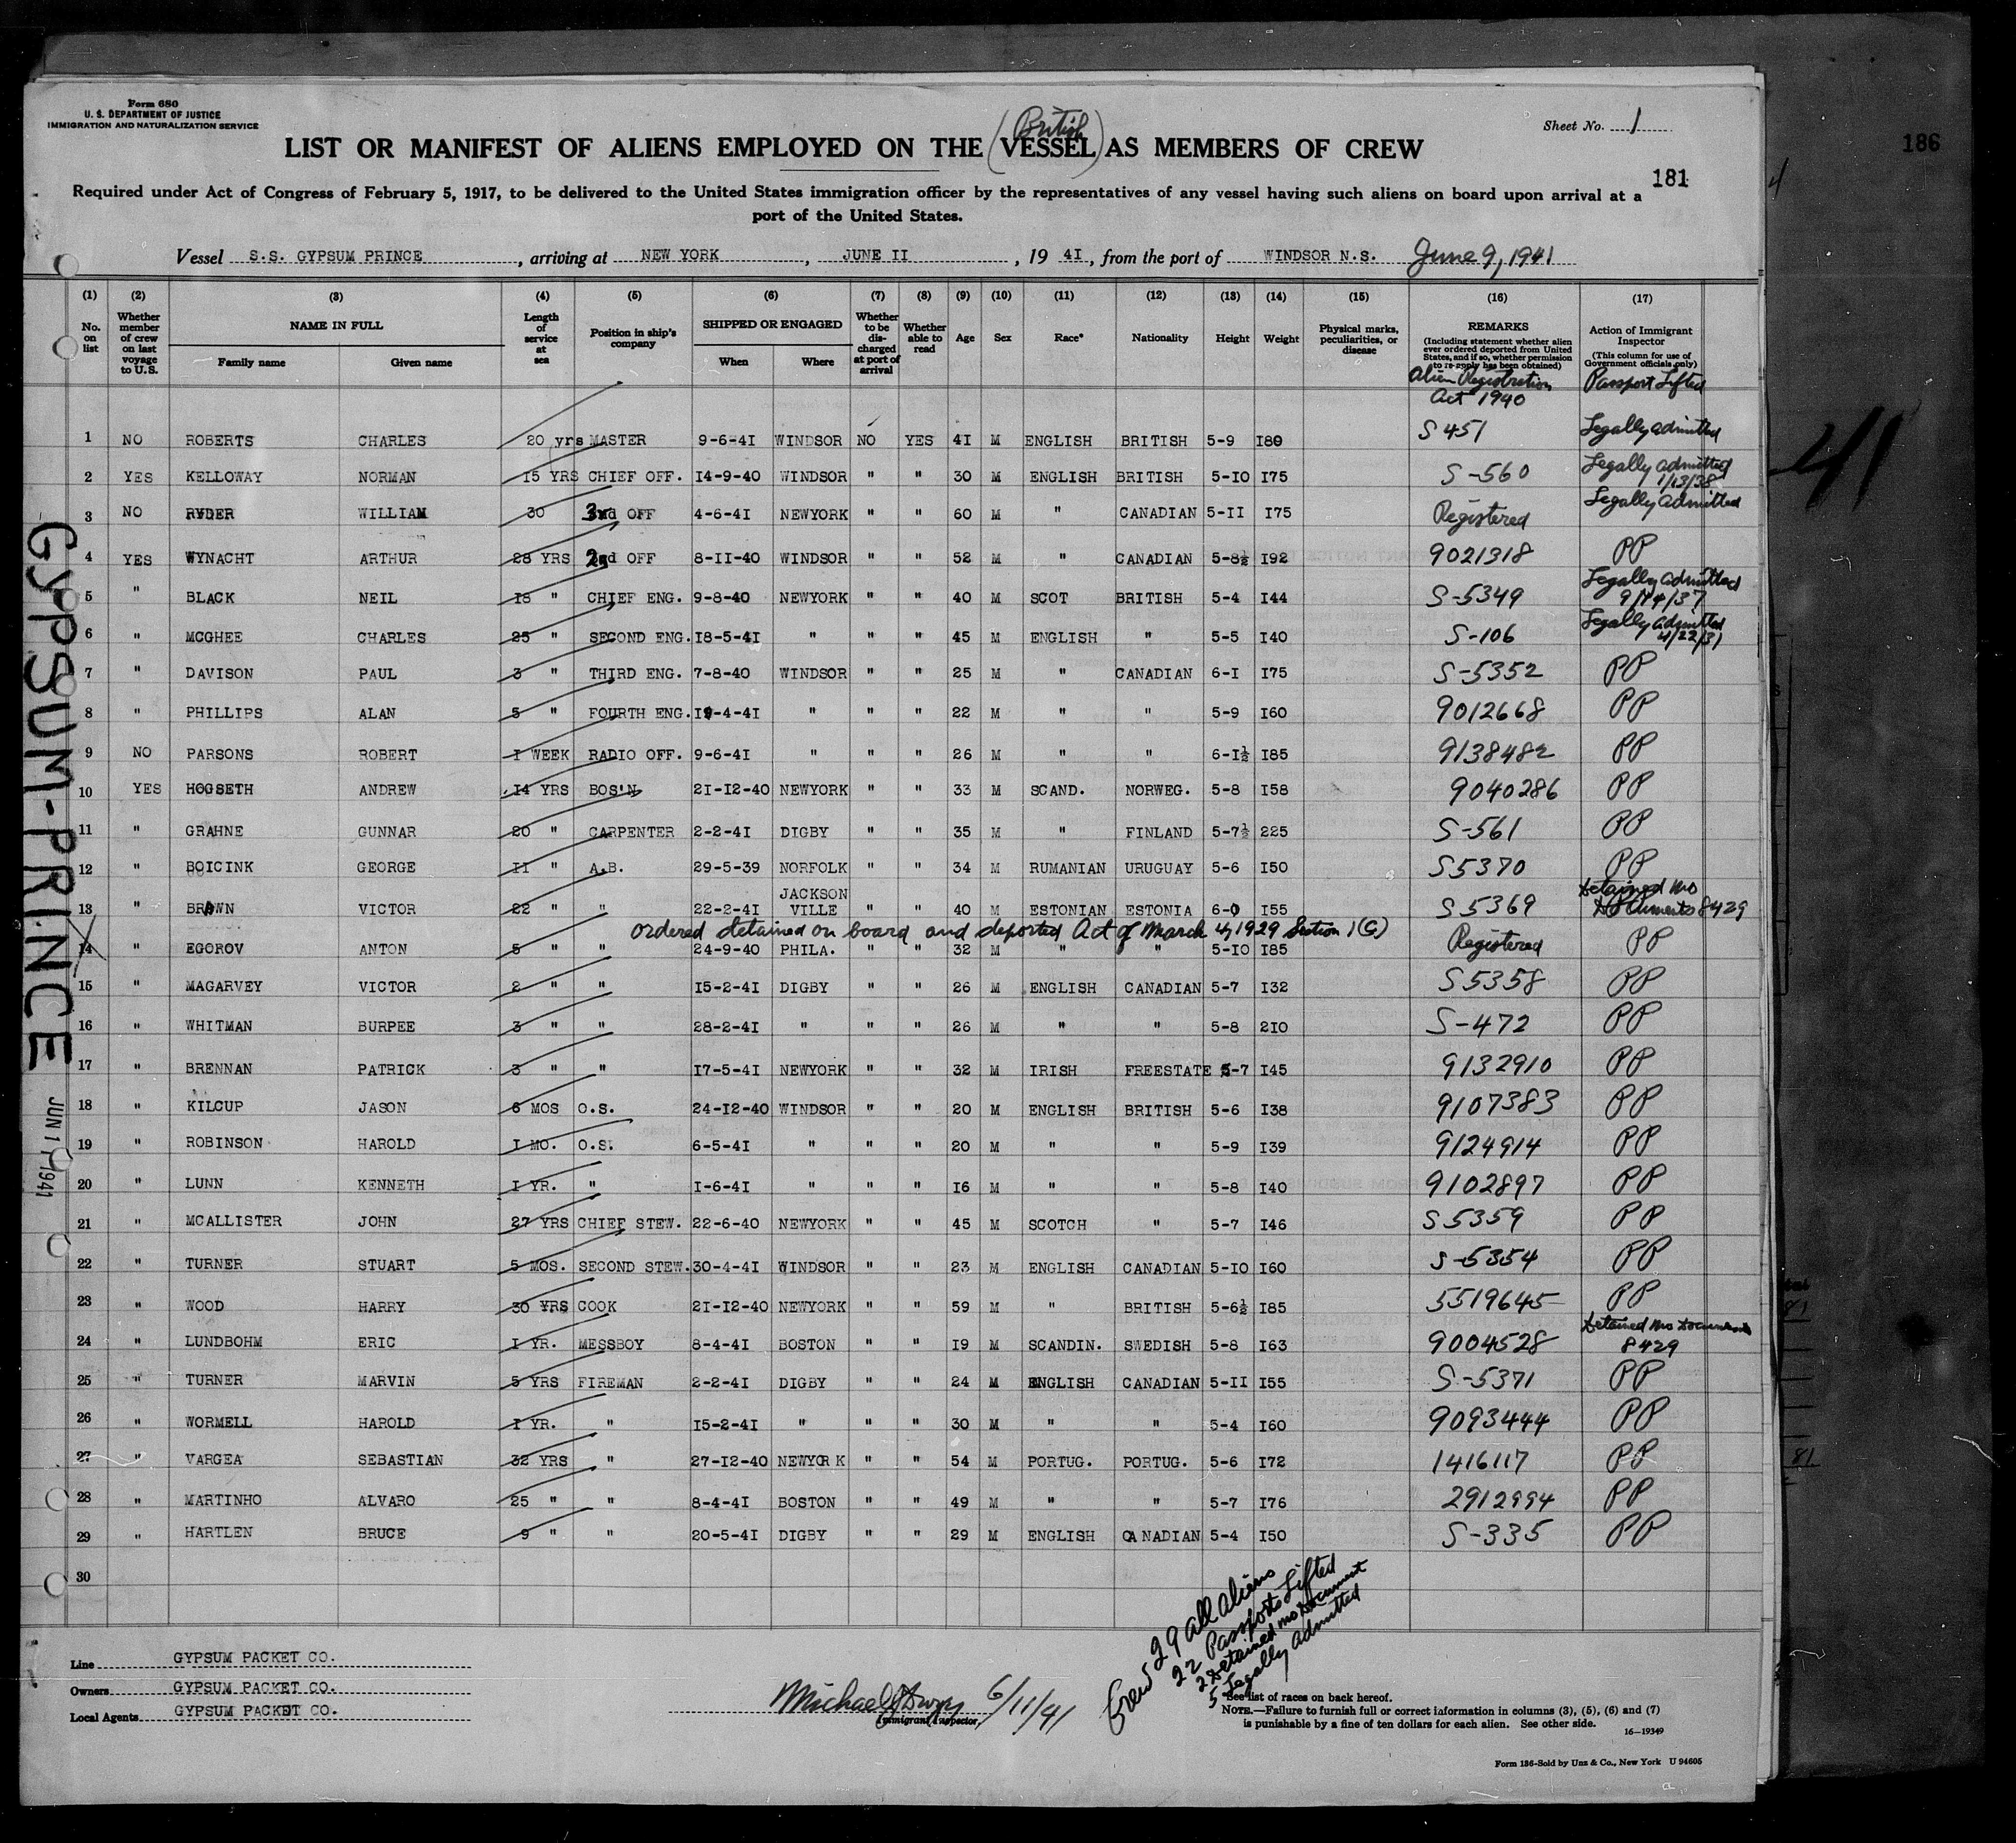 Form 680
U. S. DEPARTMENT OF JUSTICE
IMMIGRATION AND NATURALIZATION SERVICE
Sheet No. 1
LIST OR MANIFEST OF ALIENS EMPLOYED ON THE (British VESSEL) AS MEMBERS OF CREW
186
181
Required under Act of Congress of February 5, 1917, to be delivered to the United States immigration officer by the representatives of any vessel having such aliens on board upon arrival at a
port of the United States.
Vessel S.S. GYPSUM PRINCE, arriving at NEW YORK, JUNE II, 19 4I, from the port of WINDSOR N.S. June 9, 1941
(1) (2) (3) (4) (5) (6) (7) (8) (9) (10) (11) (12) (13) (14) (15) (16) (17)
No. on list
Whether member of crew on last voyage to U.S.
NAME IN FULL
Family name
Given name
Length of service at sea
Position in ship's company
SHIPPED OR ENGAGED
When
Where
Whether to be discharged at port of arrival
Whether able to read
Age
Sex
Race*
Nationality
Height
Weight
Physical marks, peculiarities, or disease
REMARKS
(Including statement whether alien ever ordered deported from United States, and if so, whether permission to re-apply has been obtained)
Action of Immigrant Inspector
(This column for use of Government officials only)
Alien Registration Act 1940
Passport Lifted
1 NO ROBERTS CHARLES 20 yrs MASTER 9-6-4I WINDSOR NO YES 4I M ENGLISH BRITISH 5-9 I80 S 451 Legally admitted
2 YES KELLOWAY NORMAN I5 YRS CHIEF OFF. I4-9-40 WINDSOR " " 30 M ENGLISH BRITISH 5-I0 I75 S-560 Legally admitted 1/13/38
3 NO RYDER WILLIAM 30 3rd OFF 4-6-4I NEWYORK " " 60 M " CANADIAN 5-II I75 Registered Legally Admitted
4 YES WYNACHT ARTHUR 28 YRS 2nd OFF 8-II-40 WINDSOR " " 52 M " CANADIAN 5-8½ I92 9021318 PP
5 " BLACK NEIL I8 " CHIEF ENG. 9-8-40 NEWYORK " " 40 M SCOT BRITISH 5-4 I44 S-5349 Legally admitted 9/14/37
6 " MCGHEE CHARLES 25 " SECOND ENG. I8-5-4I " " " 45 M ENGLISH " 5-5 I40 S-106 Legally admitted 4/22/31
7 " DAVISON PAUL 3 " THIRD ENG. 7-8-40 WINDSOR " " 25 M " CANADIAN 6-I I75 S-5352 PP
8 " PHILLIPS ALAN 5 " FOURTH ENG. I9-4-4I " " " 22 M " " 5-9 I60 9012668 PP
9 NO PARSONS ROBERT I WEEK RADIO OFF. 9-6-4I " " " 26 M " " 6-I½ I85 9138482 PP
10 YES HOGSETH ANDREW I4 YRS BOS'N 2I-I2-40 NEWYORK " " 33 M SCAND. NORWEG. 5-8 I58 9040286 PP
11 " GRAHNE GUNNAR 20 " CARPENTER 2-2-4I DIGBY " " 35 M " FINLAND 5-7½ 225 S-561 PP
12 " BOICINK GEORGE II " A.B. 29-5-39 NORFOLK " " 34 M RUMANIAN URUGUAY 5-6 I50 S5370 PP
13 " BRAWN VICTOR 22 " " 22-2-4I JACKSON VILLE " " 40 M ESTONIAN ESTONIA 6-0 I55 S5369 Detained no Documents 8429
ordered detained on board and deported Act of March 4, 1929 Section 1(C)
14 " EGOROV ANTON 5 " " 24-9-40 PHILA. " " 32 M " " 5-I0 I85 Registered PP
15 " MAGARVEY VICTOR 2 " " I5-2-4I DIGBY " " 26 M ENGLISH CANADIAN 5-7 I32 S5358 PP
16 " WHITMAN BURPEE 3 " " 28-2-4I " " " 26 M " " 5-8 2I0 S-472 PP
17 " BRENNAN PATRICK 3 " " I7-5-4I NEWYORK " " 32 M IRISH FREESTATE 5-7 I45 9132910 PP
18 " KILCUP JASON 6 MOS O.S. 24-I2-40 WINDSOR " " 20 M ENGLISH BRITISH 5-6 I38 9107383 PP
19 " ROBINSON HAROLD I MO. O.S. 6-5-4I " " " 20 M " " 5-9 I39 9124914 PP
20 " LUNN KENNETH I YR. " I-6-4I " " " I6 M " " 5-8 I40 9102897 PP
21 " MCALLISTER JOHN 27 YRS CHIEF STEW. 22-6-40 NEWYORK " " 45 M SCOTCH " 5-7 I46 S5359 PP
22 " TURNER STUART 5 MOS. SECOND STEW. 30-4-4I WINDSOR " " 23 M ENGLISH CANADIAN 5-I0 I60 S-5354 PP
23 " WOOD HARRY 30 YRS COOK 2I-I2-40 NEWYORK " " 59 M " BRITISH 5-6½ I85 5519645 PP
24 " LUNDBOHM ERIC I YR. MESSBOY 8-4-4I BOSTON " " I9 M SCANDIN. SWEDISH 5-8 I63 9004528 Detained no Documents 8429
25 " TURNER MARVIN 5 YRS FIREMAN 2-2-4I DIGBY " " 24 M ENGLISH CANADIAN 5-II I55 S-5371 PP
26 " WORMELL HAROLD I YR. " I5-2-4I " " " 30 M " " 5-4 I60 9093444 PP
27 " VARGEA SEBASTIAN 32 YRS " 27-I2-40 NEWYORK " " 54 M PORTUG. PORTUG. 5-6 I72 1416117 PP
28 " MARTINHO ALVARO 25 " " 8-4-4I BOSTON " " 49 M " " 5-7 I76 2912994 PP
29 " HARTLEN BRUCE 9 " " 20-5-4I DIGBY " " 29 M ENGLISH CANADIAN 5-4 I50 S-335 PP
30
GYPSUM-PRINCE
JUN 11 1941
41
Crew 29 all aliens
22 Passports Lifted
2 Detained no Document
5 Legally Admitted
Line GYPSUM PACKET CO.
Owners GYPSUM PACKET CO.
Local Agents GYPSUM PACKET CO.
Michael 6/11/41
Immigrant Inspector.
*See list of races on back hereof.
NOTE.—Failure to furnish full or correct information in columns (3), (5), (6) and (7)
is punishable by a fine of ten dollars for each alien. See other side.
16—19349
Form 186-Sold by Unz & Co., New York U 94605